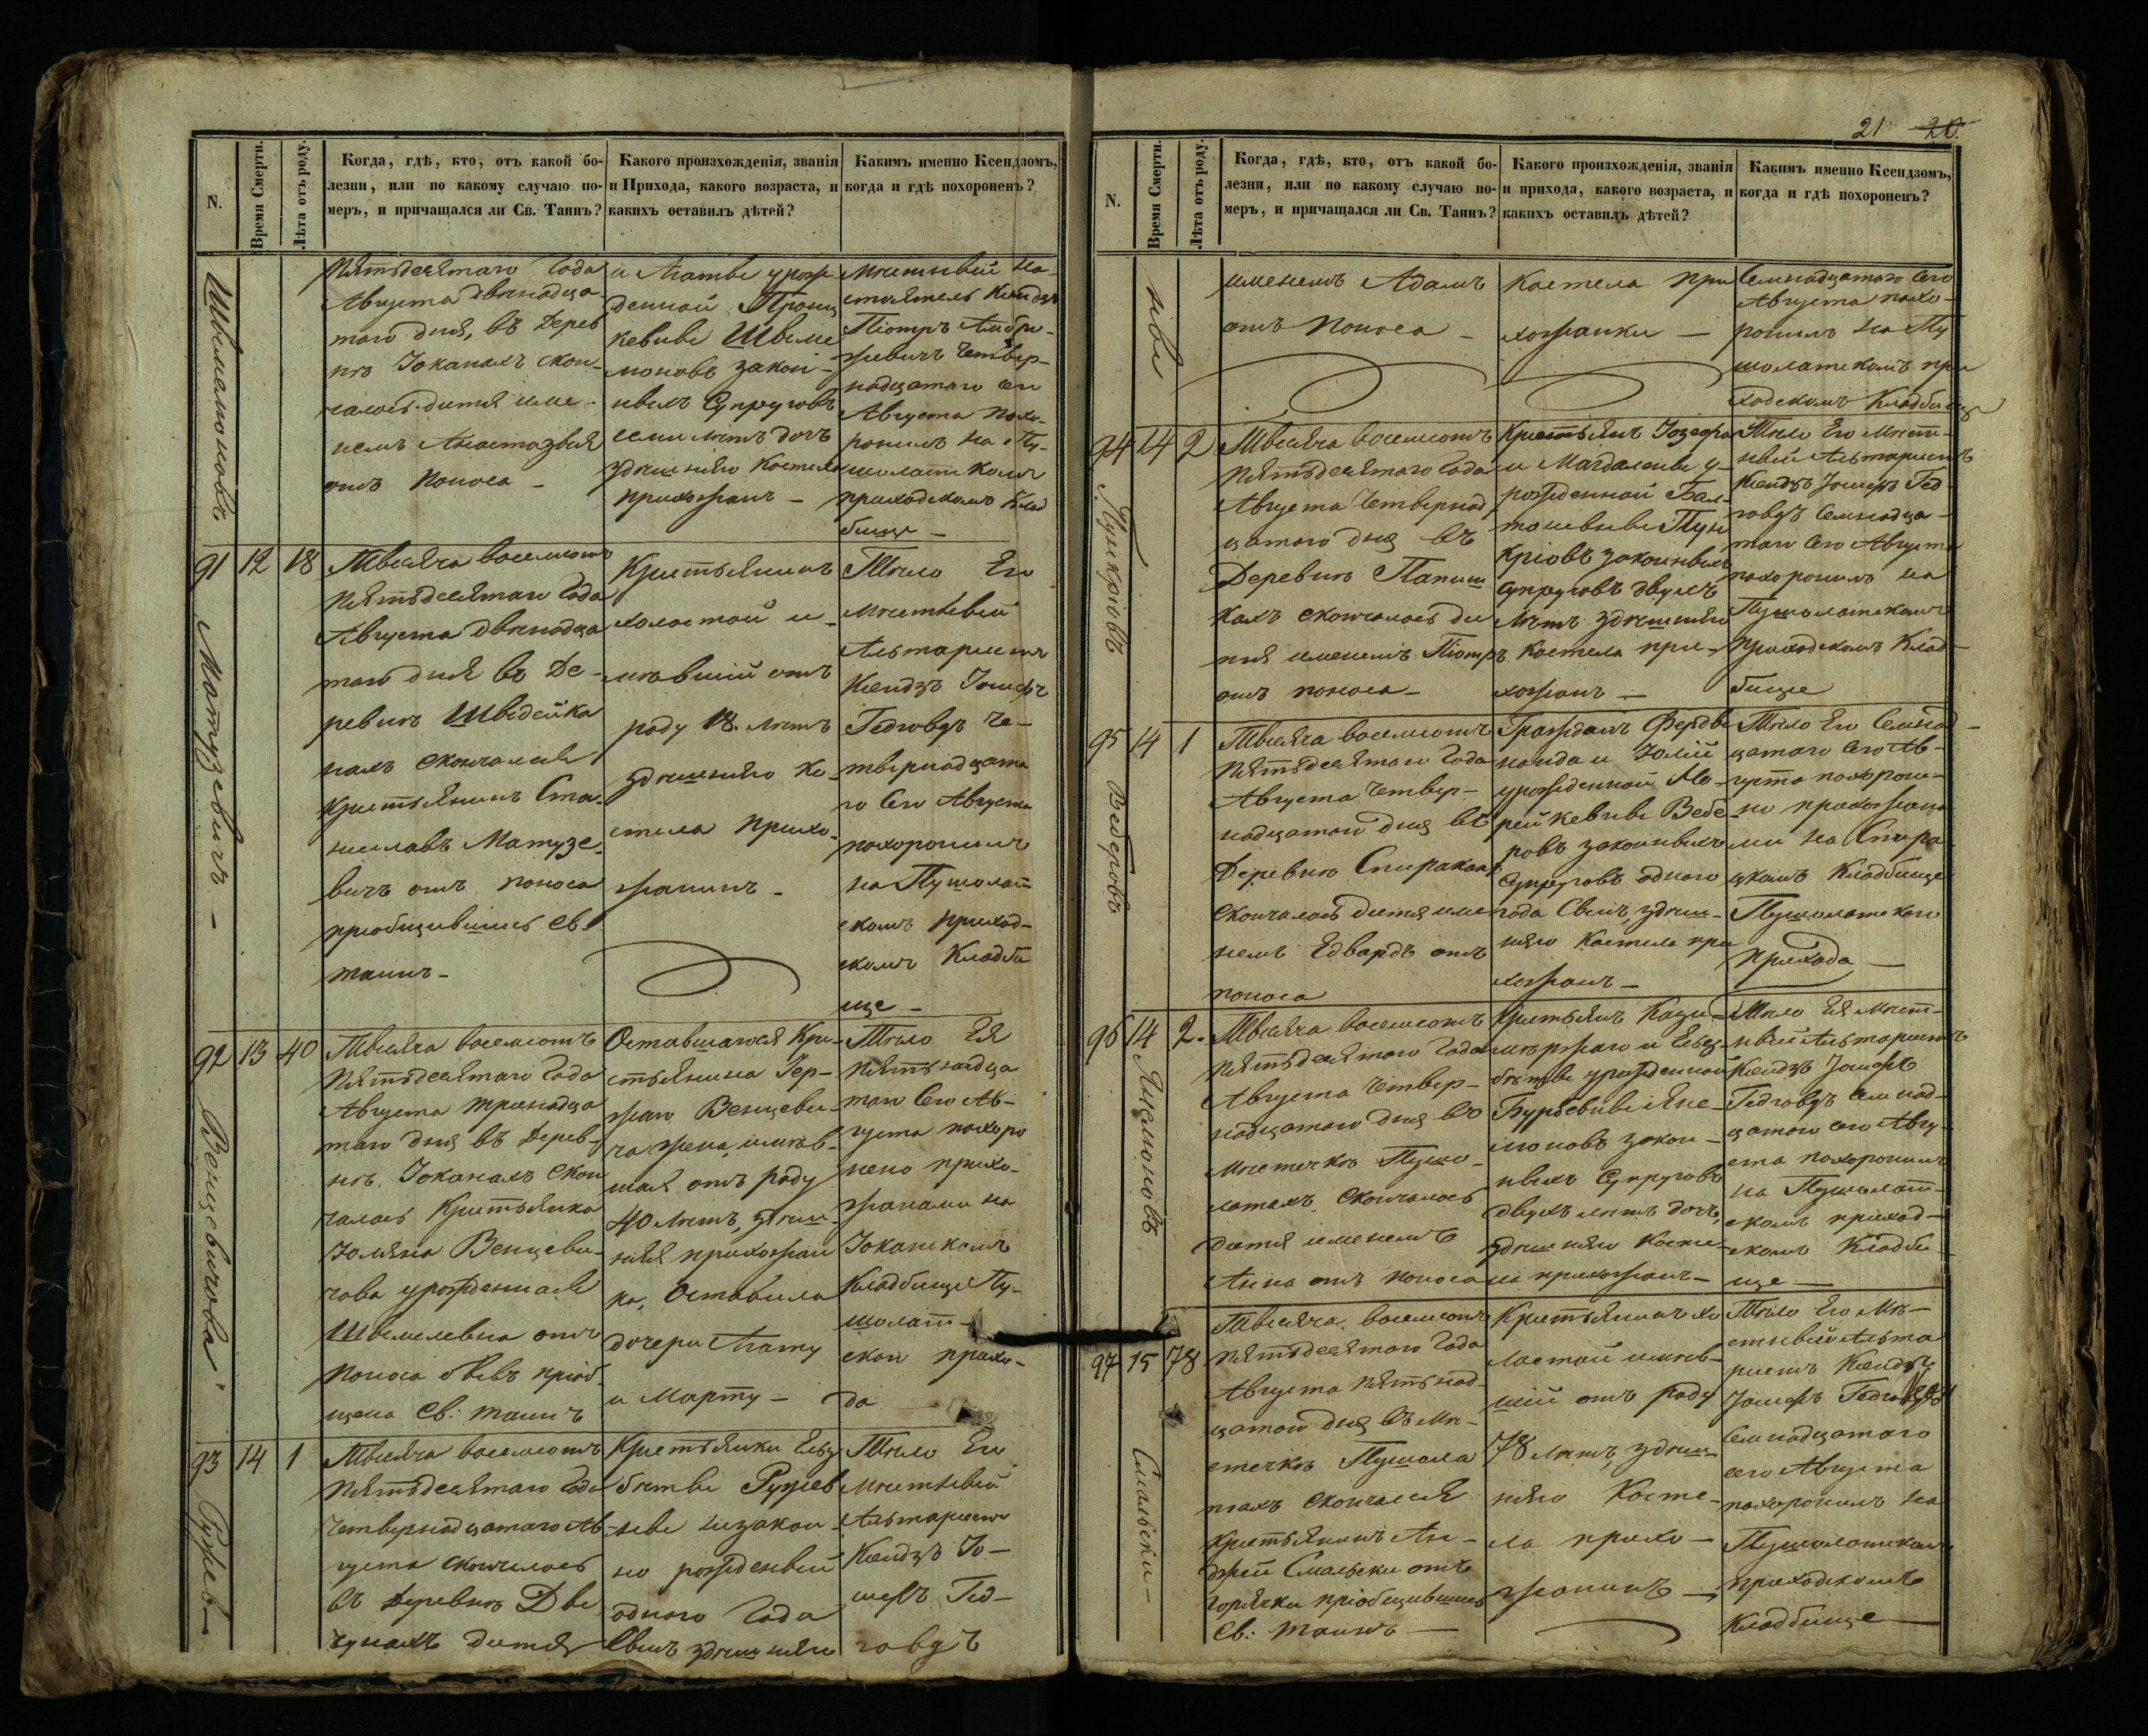 N.
Время Смерти.
Лѣта отъ роду.
Когда, гдѣ, кто, отъ какой бо-
лезни, или по какому случаю по-
меръ, и причащался ли Св. Таинъ?
Какого произхожденія, званія
и Прихода, какого возраста, и
какихъ оставилъ дѣтей?
Какимъ именно Ксендзомъ,
когда и гдѣ похороненъ?
Пятьдесятаго Года
Августа двѣнадца
таго дня, въ Дерев
нѣ Іоканахъ скон-
чалось дитя име-
немъ Анастазыя
отъ поноса -
и Агаты урож-
денной
закон-
ныхъ Супруговъ
семи лѣтъ дочь
здѣшняго Костела
прихожанъ -
Мѣстный На-
стоятель Ксендзъ
Піотръ Амбро-
жевичъ Четвер-
надцатаго сего
Августа похо-
ронилъ на Пу-
шолатскомъ
приходскомъ Клад
бище -
91
12
18
Матузевичъ -
Тысяча восемсотъ
Пятьдесятаго Года
Августа двѣнадца
таго дня въ Де-
ревнѣ Шведейка
нахъ скончался
Крестьянинъ Ста-
ниславъ Матузе-
вичъ отъ поноса
пріобщившись Св.
таинъ -
Крестьянинъ
холостой и-
мѣвшій отъ
роду 18. лѣтъ
здѣшняго Ко-
стела прихо-
жанинъ -
Тѣло Его
Мѣстный
Альтаристъ
Ксендзъ Іосифъ
Гедговдъ Че-
твернадцата
го Сего Августа
похоронилъ
на Пушолат
скомъ приход-
скомъ Кладби
ще -
92
13
40
Венцевичова
Тысяча восемсотъ
Пятьдесятаго Года
Августа тринадца
таго дня въ Дерев-
нѣ Іоканахъ Скон
чалась Крестьянка
Юльяна Венцеви-
чова урожденная
Швемелевна отъ
Поноса бывъ пріоб-
щена Св: таинъ
Оставшагося Кре-
стьянина Гер-
жаго Венцеви-
ча жена, имѣв-
шая отъ роду
40 Лѣтъ, здѣш-
няя прихожан
ка, Оставила
дочери Агату
и Марту -
Тѣло Ея
Пятьнадца
таго Сего Ав-
густа похоро
нено прихо-
жанами на
Іоканскомъ
Кладбище Пу-
шолат-
скаго прихо-
да
93
14
1
Тысяча восемсотъ
Пятьдесятаго Года
Четвернадцатаго Ав
густа скончалось
въ Деревнѣ Две
гунахъ дитя
Крестьянки Ельз
бѣты
незакон-
но рожденный
одного Года
Сынъ здѣшняго
Тѣло Его
Мѣстный
Альтаристъ
Ксендзъ Іо-
сифъ Гед-
говдъ
21 20.
N.
Время Смерти.
Лѣта отъ роду.
Когда, гдѣ, кто, отъ какой бо-
лезни, или по какому случаю по-
меръ, и причащался ли Св. Таинъ?
Какого произхожденія, званія
и прихода, какого возраста, и
какихъ оставилъ дѣтей?
Какимъ именно Ксендзомъ,
когда и гдѣ похороненъ?
именемъ Адамъ
отъ Поноса -
Костела при
хожанки -
Семнадцатаго Сего
Августа похо-
ронилъ на Пу
шолатскомъ при
ходскомъ Кладбище
94
14
2
Пункріовъ
Тысяча восемсотъ
Пятьдесятаго Года
Августа Четвернад
цатаго дня въ
Деревнѣ Папиш
кахъ скончалось ди
тя именемъ Піотръ
отъ поноса -
Крестьянъ Іозефа
и Магдалены у-
рожденной Бал-
тошевны Пун
кріовъ законныхъ
Супруговъ двухъ
Лѣтъ здѣшняго
Костела при-
хожанъ -
Тѣло Его Мѣст-
ный Альтаристъ
Ксендзъ Іосифъ Гед-
говдъ Семнадца-
таго Сего Августа
похоронилъ на
Пушолатскомъ
Приходскомъ Клад-
бище
95
14
1
Веберовъ
Тысяча восемсотъ
Пятьдесятаго Года
Августа Четвер-
надцатаго дня въ
Деревнѣ Спиракахъ
Скончалось дитя име
немъ Едвардъ отъ
поноса
Гражданъ Ферды
нанда и Юліи
урожденной Мо-
рейкевны Вебе-
ровъ законныхъ
Супруговъ одного
года Сынъ, здѣш-
няго Костела при
хожанъ -
Тѣло Его Семнад-
цатаго Сего Ав-
густа похороне-
но прихожана
ми на Спира-
цкомъ Кладбище
Пушолатскаго
Прихода -
96
14
2.
Тысяча восемсотъ
Пятьдесятаго Года
Августа Четвер-
надцатаго дня въ
Мѣстечкѣ Пушо-
латахъ Скончалось
Дитя именемъ
Анна отъ поноса
Крестьянъ Кази-
мѣржаго и Ельз-
бѣты урожденной
закон-
ныхъ Супруговъ
двухъ лѣтъ дочь,
здѣшняго Косте-
ла прихожанъ -
Тѣло Ея Мѣст-
ный Альтаристъ
Ксендзъ Іосифъ
Гедговдъ Семнад-
цатаго сего Авгу-
ста похоронилъ
на Пушолат-
скомъ приход-
скомъ Кладби-
ще -
97
15
78
Смальски -
Тысяча восемсотъ
Пятьдесятаго Года
Августа Пятьнад-
цатаго дня въ Мѣ-
стечкѣ Пушола
тахъ скончался
Крестьянинъ Ан-
држей Смальски отъ
горячки пріобщившись
Св: Таинъ -
Крестьянинъ хо
лостой имѣв-
шій отъ роду
78 Лѣтъ, здѣш-
няго Косте-
ла прихо-
жанинъ -
Тѣло Его Мѣ-
стный Альта
ристъ Ксендзъ
Іосифъ Гедговдъ
Семнадцатаго
сего Августа
похоронилъ на
Пушолатскомъ
приходскомъ
Кладбище -